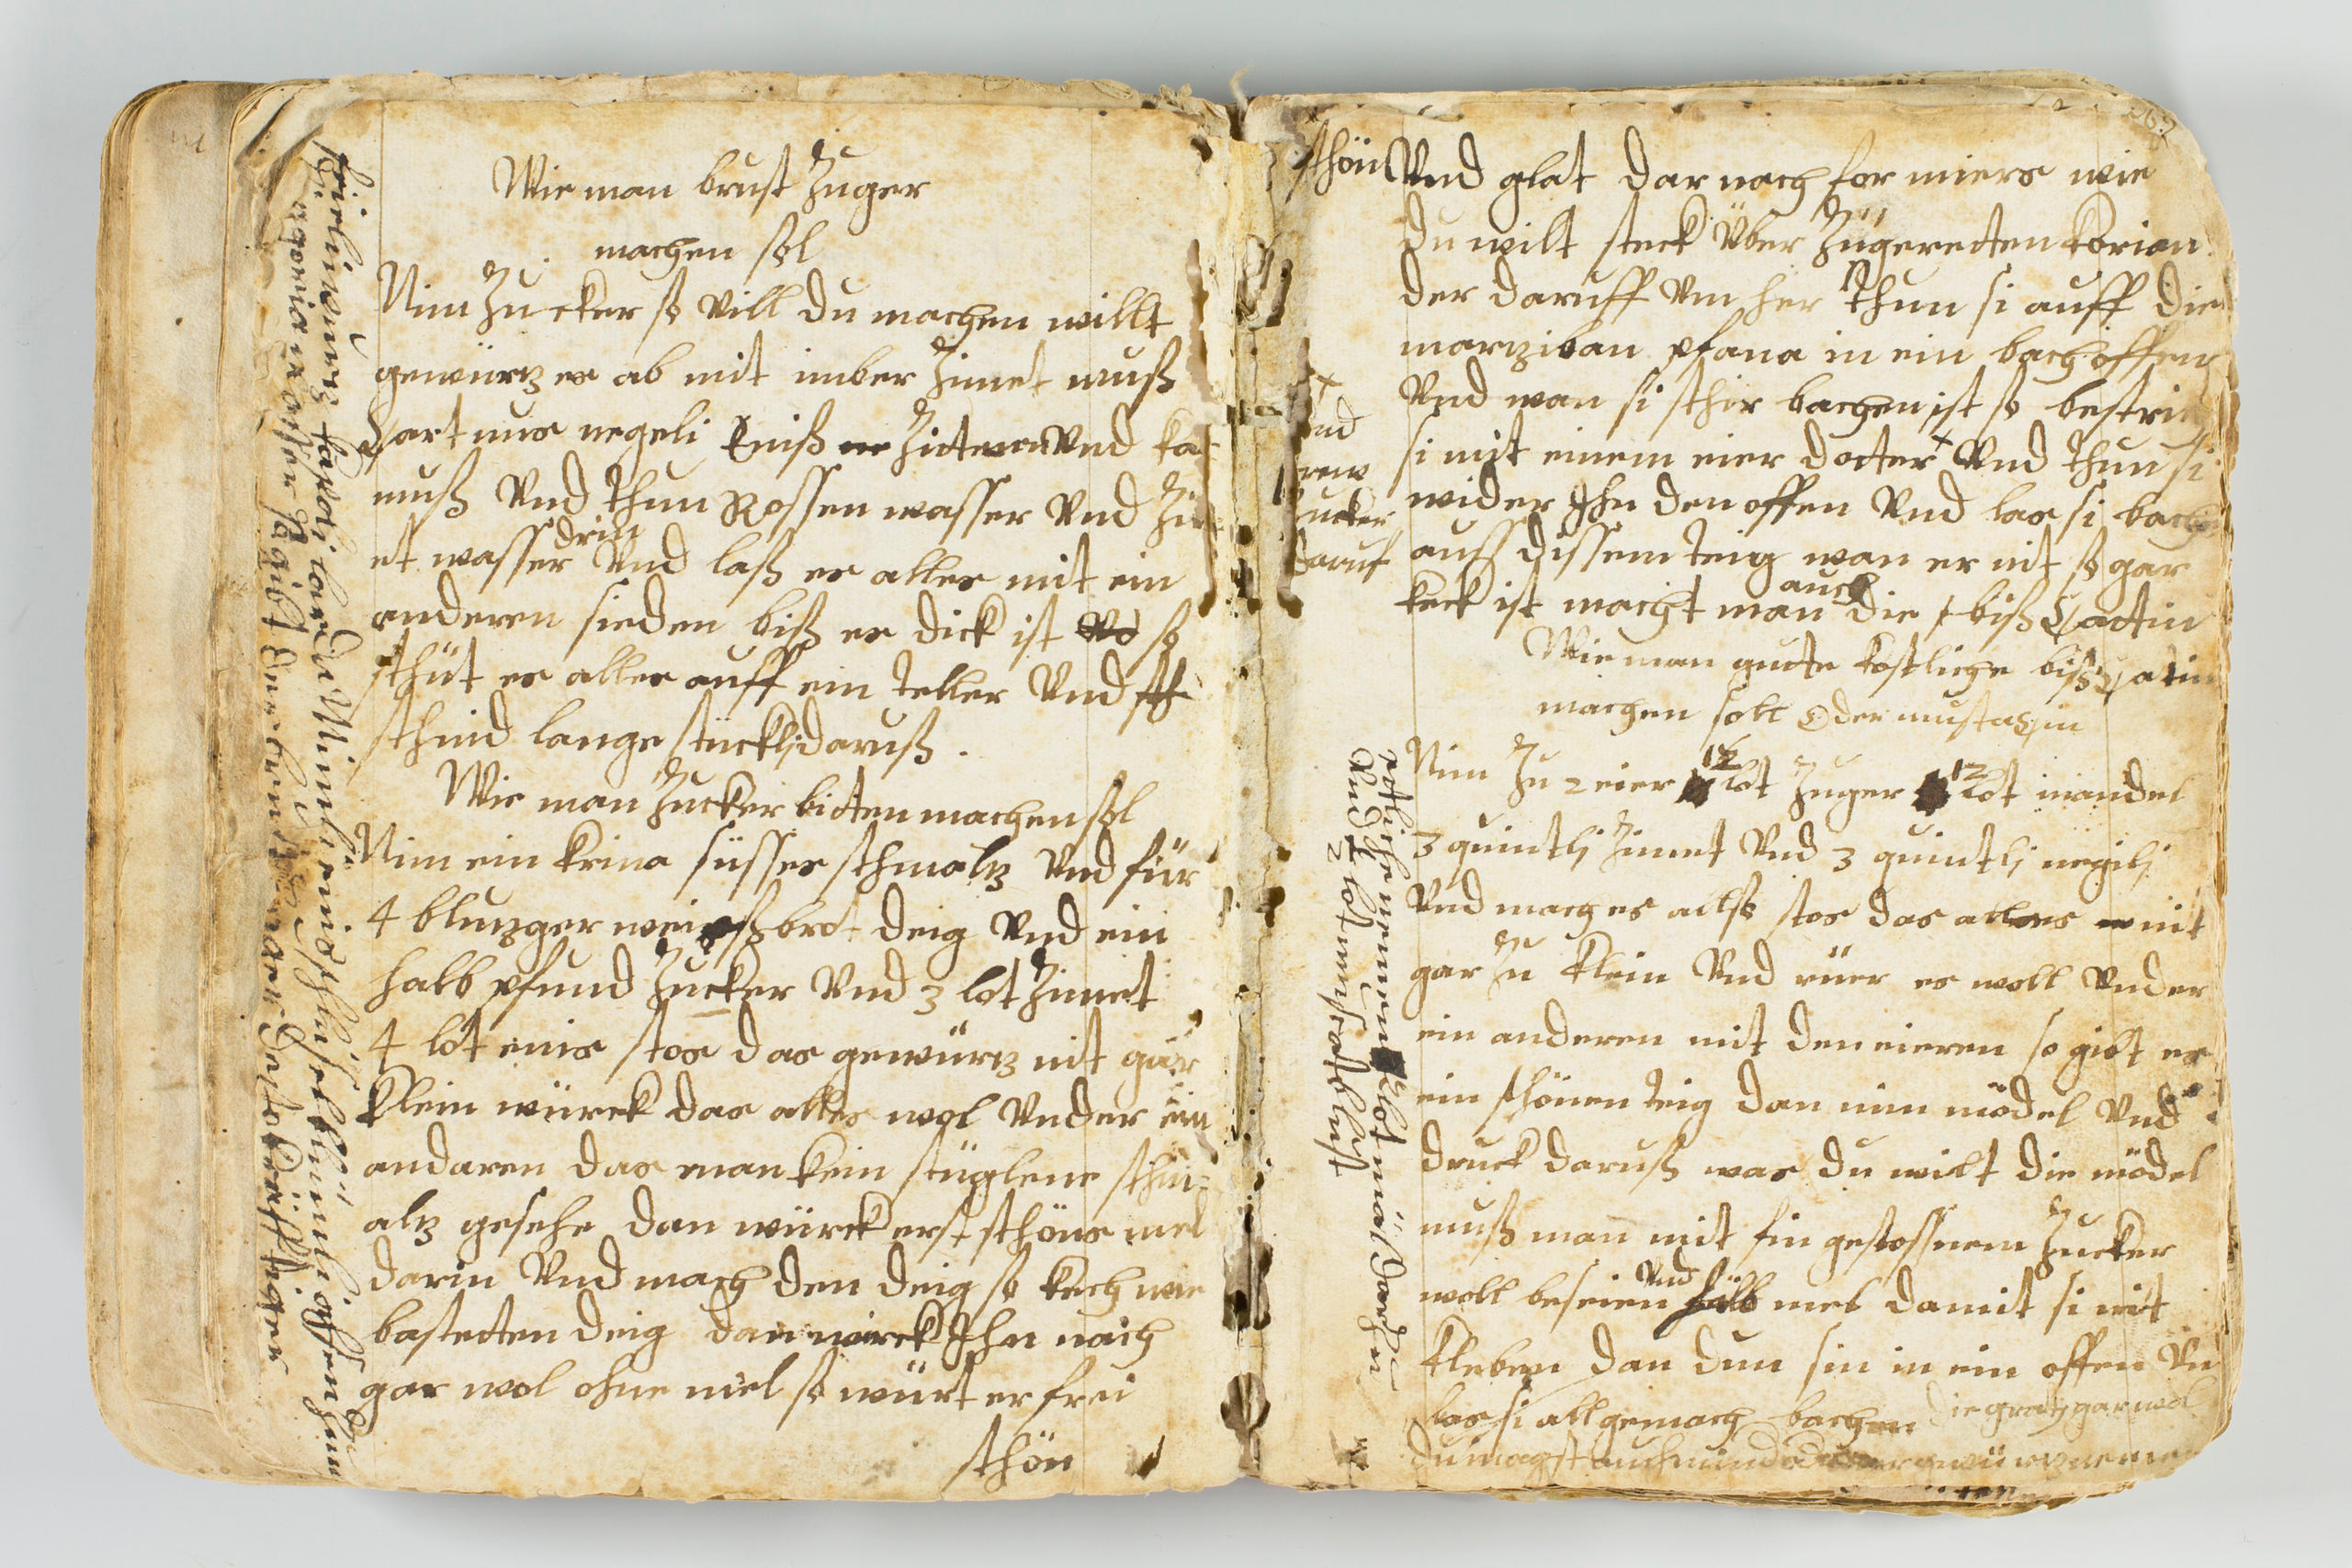 Wie man brust Zuger
machen sol
Nim Zucker so vill du machen willt
gewürtz es ab mit imber Zimet muß
Cartnus negeli Eniß Zitwen Vnd ka
muß Vnd thun Rossen wasser Vnd Zim
et wasser drin Vnd laß es alles mit ein
anderen sieden biß es dick ist so
schüt es alles auff ein teller Vnd
schnid lange stücklj daruß .
Wie man Zucker bicten machen sol
Nim ein krina süsses schmaltz Vnd für
4 blutzger weissbrot deig Vnd ein
halb pfund Zucker Vnd 3 lot Zimet
4 lot enis stos das gewürtz nit gar
klein würck das alles wol Vnder ein
andaren das man kein stüglene schm
altz gesehe dan würck erst schöns mel
darin Vnd mach den deig so kech wie
bastecten deig dan wirck Jhn noch
gar wol ohne mel so würt er frei
schön
schön Vnd glat dar nach for miers wie
du wilt steck Vber Zügerecten korian
der daruff Vm her thun si auff die
martziban pfana in ein bach offen
Vnd wan si schir bachen ist so bestrich
si mit einem eier docter + Vnd thun si
wider Jhn den offen Vnd las si bachen
+
Vnd
Zucker
daruf
auss dissem teig wan er nit so gar
keck ist macht man auch die bißCactin
Wie man gucte kostliche bißCatin
machen soll Oder mustaCin
Nim Zu 2 eier lot Zuger 12 lot mandel
3 quintlj Zimet Vnd 3 quintlj negilj
Vnd mach es allso stos das alles nit
gar Zu klein Vnd rüer es woll Vnder
ein anderen mit den eieren so gibt es
ein schönen teig dan nim mödel Vnd
druck daruß was du wilt die mödel
muß man mit fin gestossnem Zucker
woll beseien Vnd halb mel damit si nit
kleben dan dun sin in ein offen Vn
las si allgemach bachen
etliche nemmen lot muß darzu